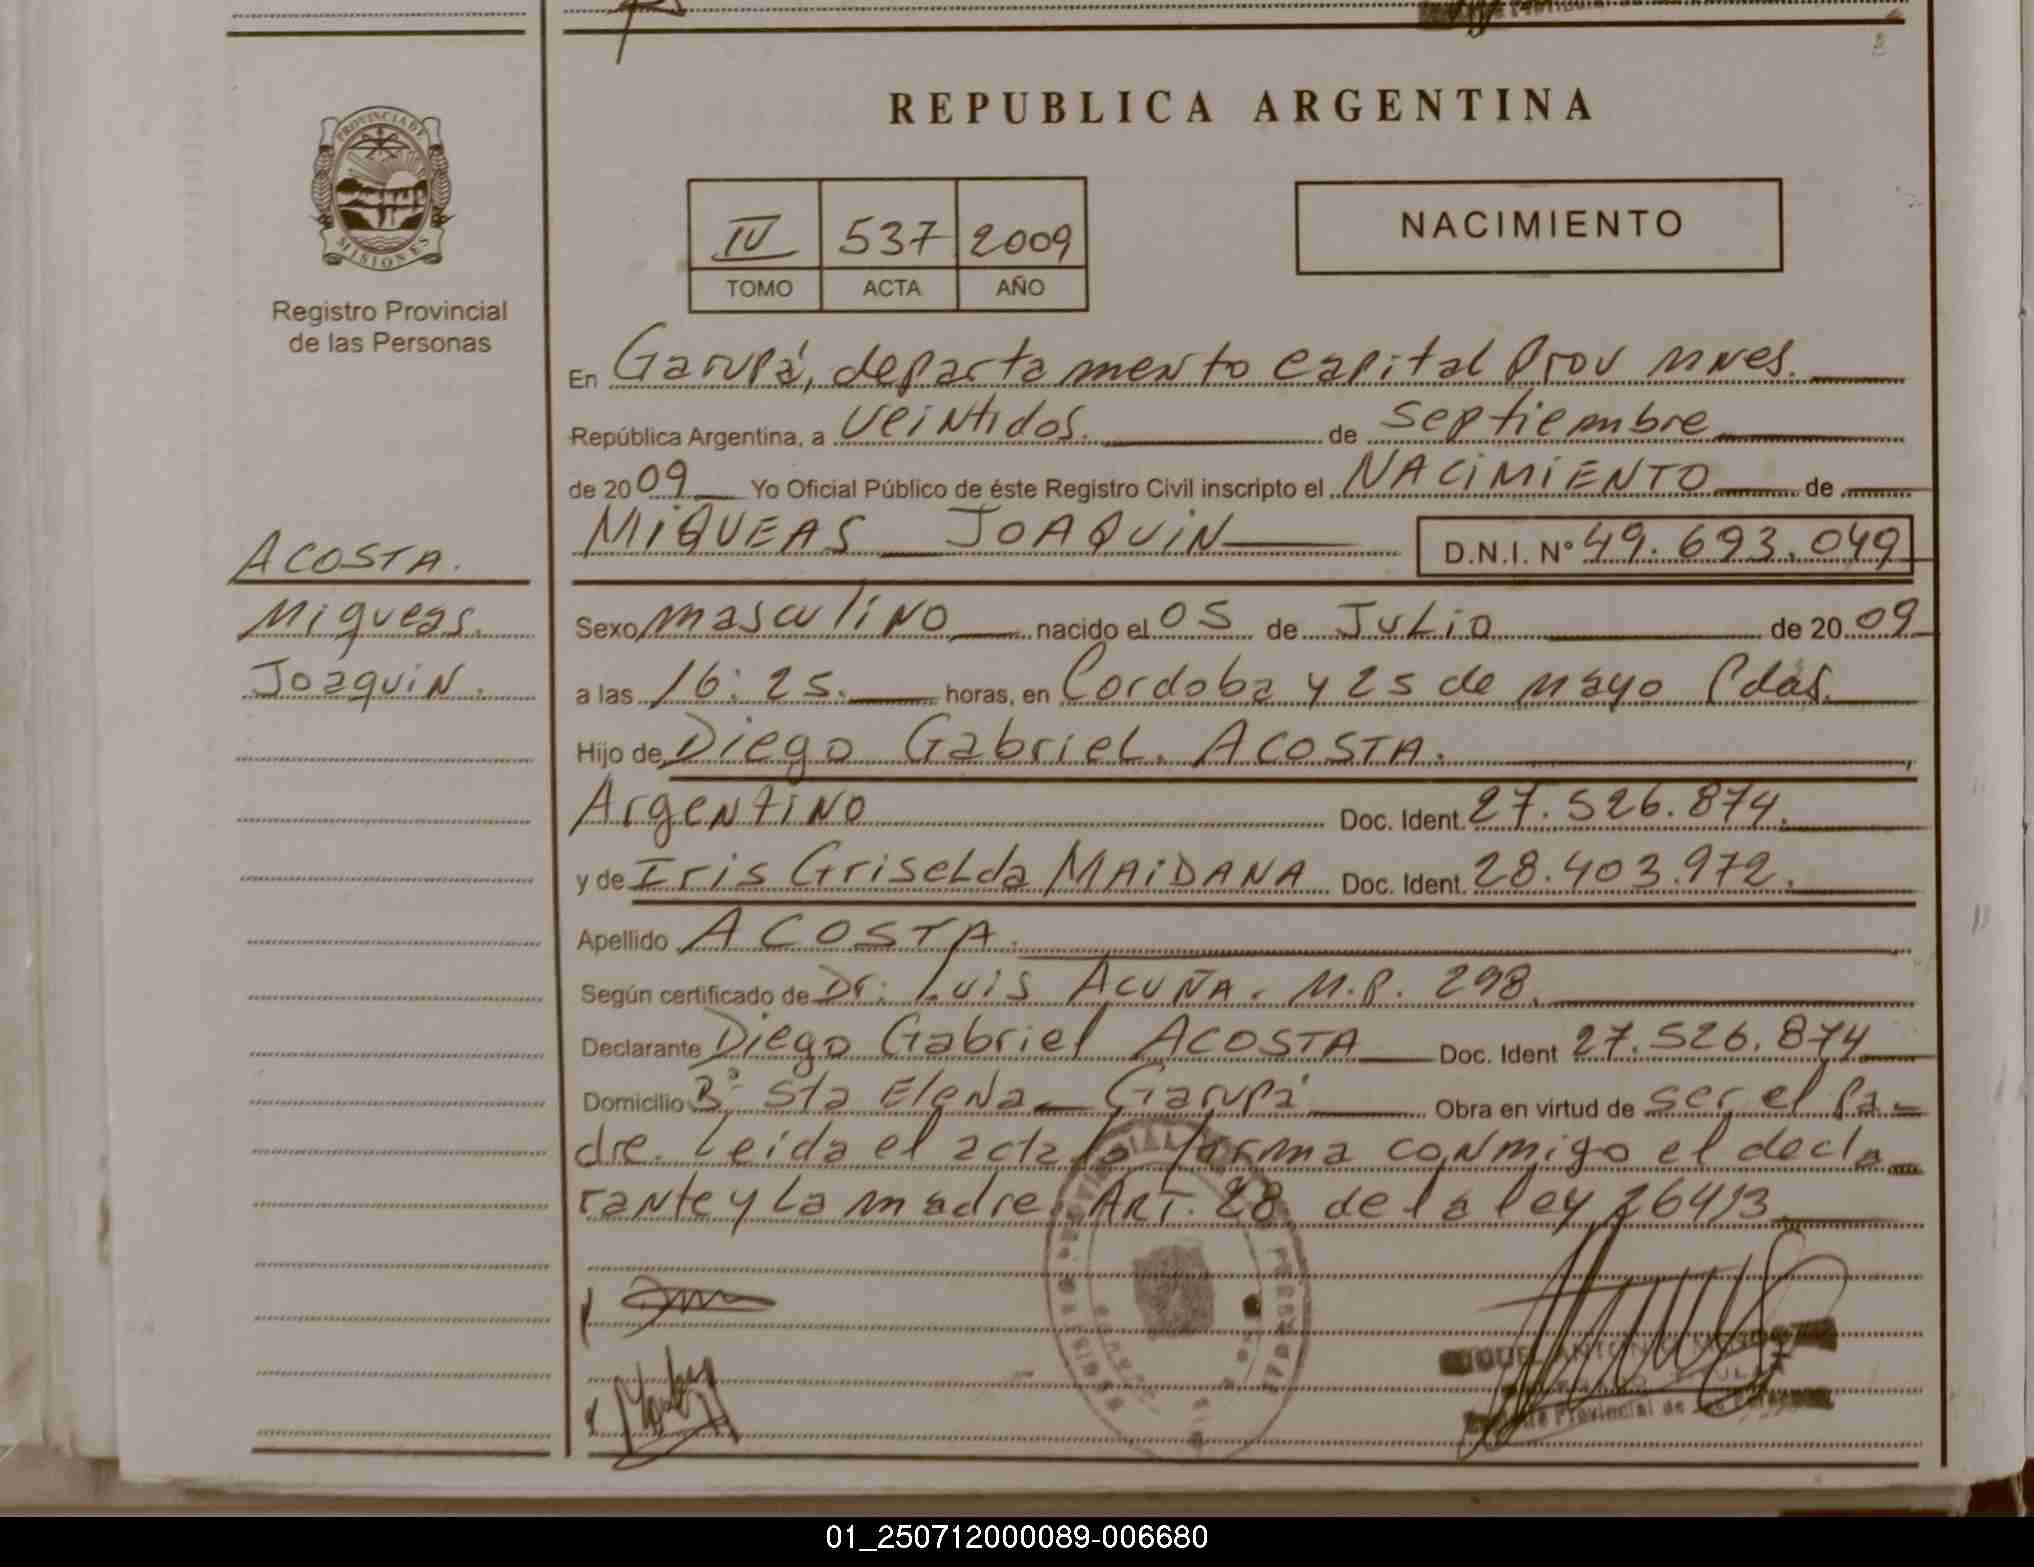 REPUBLICA ARGENTINA
PROVINCIA DE
MISIONES
Registro Provincial
de las Personas
IV 537 2009
TOMO ACTA AÑO
NACIMIENTO
En Garupá, departamento capital Prov Mnes.
República Argentina, a veintidos. de septiembre
de 2009 Yo Oficial Público de éste Registro Civil inscripto el NACIMIENTO de
MIQUEAS JOAQUIN D.N.I. Nº 49.693.049
ACOSTA.
Miqueas.
Joaquin.
Sexo masculino nacido el 05 de Julio de 2009
a las 16:25. horas, en Cordoba y 25 de mayo Pdas.
Hijo de Diego Gabriel. ACOSTA.
Argentino Doc. Ident. 27.526.874.
y de Iris Griselda MAIDANA Doc. Ident. 28.403.972.
Apellido ACOSTA.
Según certificado de Dr. Luis ACUÑA. M.P. 298.
Declarante Diego Gabriel ACOSTA Doc. Ident 27.526.874
Domicilio Bº Sta Elena Garupá Obra en virtud de ser el Pa-
dre. Leida el acta la firma conmigo el decla
rante y la madre. ART. 28 de la ley 26413.
Provincial de las
01_250712000089-006680